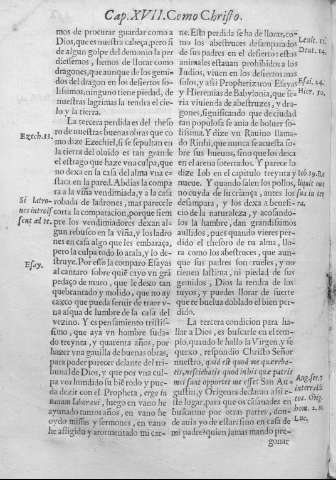 Cap. XVII. Como Christo.
mos de procurar guardar como a
Dios, que es nuestra cabeça, pero si
de algun golpe del demonio la per
diessemos, hemos de llorar como
dragones, que aunque de los gemi-
dos del dragon en los desiertos so-
lissimos, ninguno tiene piedad, de
nuestras lagrimas la tendra el cie-
lo y la tierra.
La tercera perdida es del theso
ro de nuestras buenas obras que co
mo dize Ezechiel, si se sepultan en
la tierra del oluido es tan grande
el estrago que haze vna culpa, que
no dexa en la casa del alma vna es
taca en la pared. Abdias la compa
ra a la viña vendimiada, y a la casa
robada de ladrones, mas parecele
corta la comparacion, porque siem
pre los vendimiadores dexan al
gun rebusco en la viña, y los ladro
nes en casa algo que les embaraça,
pero la culpa todo lo arala, y lo de-
struye. Por esso la comparo Esayas
al cantaro sobre quiẽ cayo vn grã
pedaço de muro, que le dexo tan
quebrantado y molido, que no ay
caxco que pueda seruir de traer v-
na asqua de lumbre de la casa del
vezino. Y es pensamiento tristis-
simo, que aya vn hombre suda-
do treynta, y quarenta años, por
hazer vna pinilla de buenas obras,
para poder parecer delante del tri-
bunal de Dios, y que por vna cul-
pa vea hundido su biẽ todo y pue-
da dezir con el Propheta, ergo in
vanum laboraui, luego en vano he
ayunado tantos años, en vano he
oydo missas y sermones, en vano
he afligido y atormentado mi car-
ne. Esta perdida se ha de llorar, co-
mo los abestruces desamparados
de sus padres en el desierto: estas
animales estauan prohibidos a los
Iudios, viuen en los desiertos mas
solos, y assi Prophetizaron Esayas
y Hieremias de Babylonia, que se-
ria viuienda de abestruzes, y dra-
gones, significando que de ciudad
tan populosa se auia de boluer so-
lissima. Y dize vn Rauino llama-
do Rinhi, que nunca se acuesta so-
bre sus hueuos, sino que los dexa
en el arena soterrados. Y parece lo
dize Iob en el capitulo treynta y
nueue. Y quando salen los pollos,
no cuyda de su criança, antes los
desampara, y los dexa a benefi-
cio de la naturaleza, y acosando-
los la hambre, dan grandissimos
aullidos, pues quando vieres per-
dido el thesoro de tu alma, llo-
ra como los abestruces, que aun-
que sus padres son crueles, y no
tienen lastima, ni piedad de sus
gemidos, Dios la tendra de los
tuyos, y puedes llorar de suerte
que te buelua doblado el bien per-
dido.
La tercera condicion para ha-
llar a Dios, es buscarle en el tem-
plo, quando le hallo la Virgen, y se
quexo, respondio Christo Señor
nuestro, quid est quod me quæreba-
tis, nesciebatis quod in his quæ patris
mei sunt oportet me esse? San Au-
gustin, y Origenes declaran assi e-
ste lugar, para que os cansauades en
buscarme por otras partes, don-
de auia yo de estar sino en casa de
mi padre: quien jamas mando pre-
gonar
Ezech.33.
Esay.
Leuit. 11.
Deut. 14.
Hier. 50.
Luc.